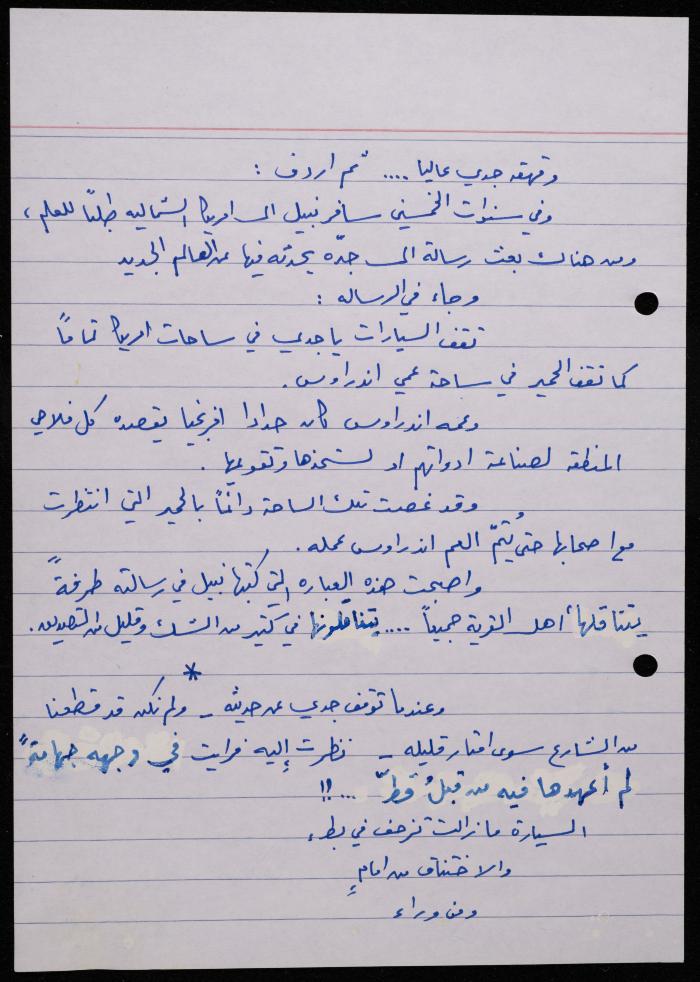 وقهقه جدي عاليا .... ثم اردف :
وفي سنوات الخمسين سافر نبيل الى امريكا الشماليه طلبًا للعلم ،
ومن هناك بعث رسالة الى جدّه يحدثه فيها عن العالم الجديد
وجاء في الرساله :
تقف السيارات يا جدي في ساحات امريكا تمامًا
كما تقف الحمير في ساحة عمي اندراوس .
وعمه اندراوس كان حدادا افرنجيا يقصده كل فلاحي
المنطقه لصناعة ادواتهم او لشحذها وتقويمها .
وقد غصت تلك الساحة دائمًا بالحمير التي انتظرت
مع اصحابها حتى يُتمّ العم اندراوس عمله .
واصبحت هذه العباره التي كتبها نبيل في رسالته طرفةً
يتناقلها أهل القرية جميعاً .... يتناقلونها في كثير من الشك وقليل من التصديق .
*
وعندما توقف جدي عن حديثه - ولم نكن قد قطعنا
من الشارع سوى امتار قليله - نظرت إليه فرايت في وجهه جهامةً
لم أعهدها فيه من قبلُ قطّ ....!!
السيارة ما زالت تزحف في بطء
والاختناق من امامٍ
ومن وراء